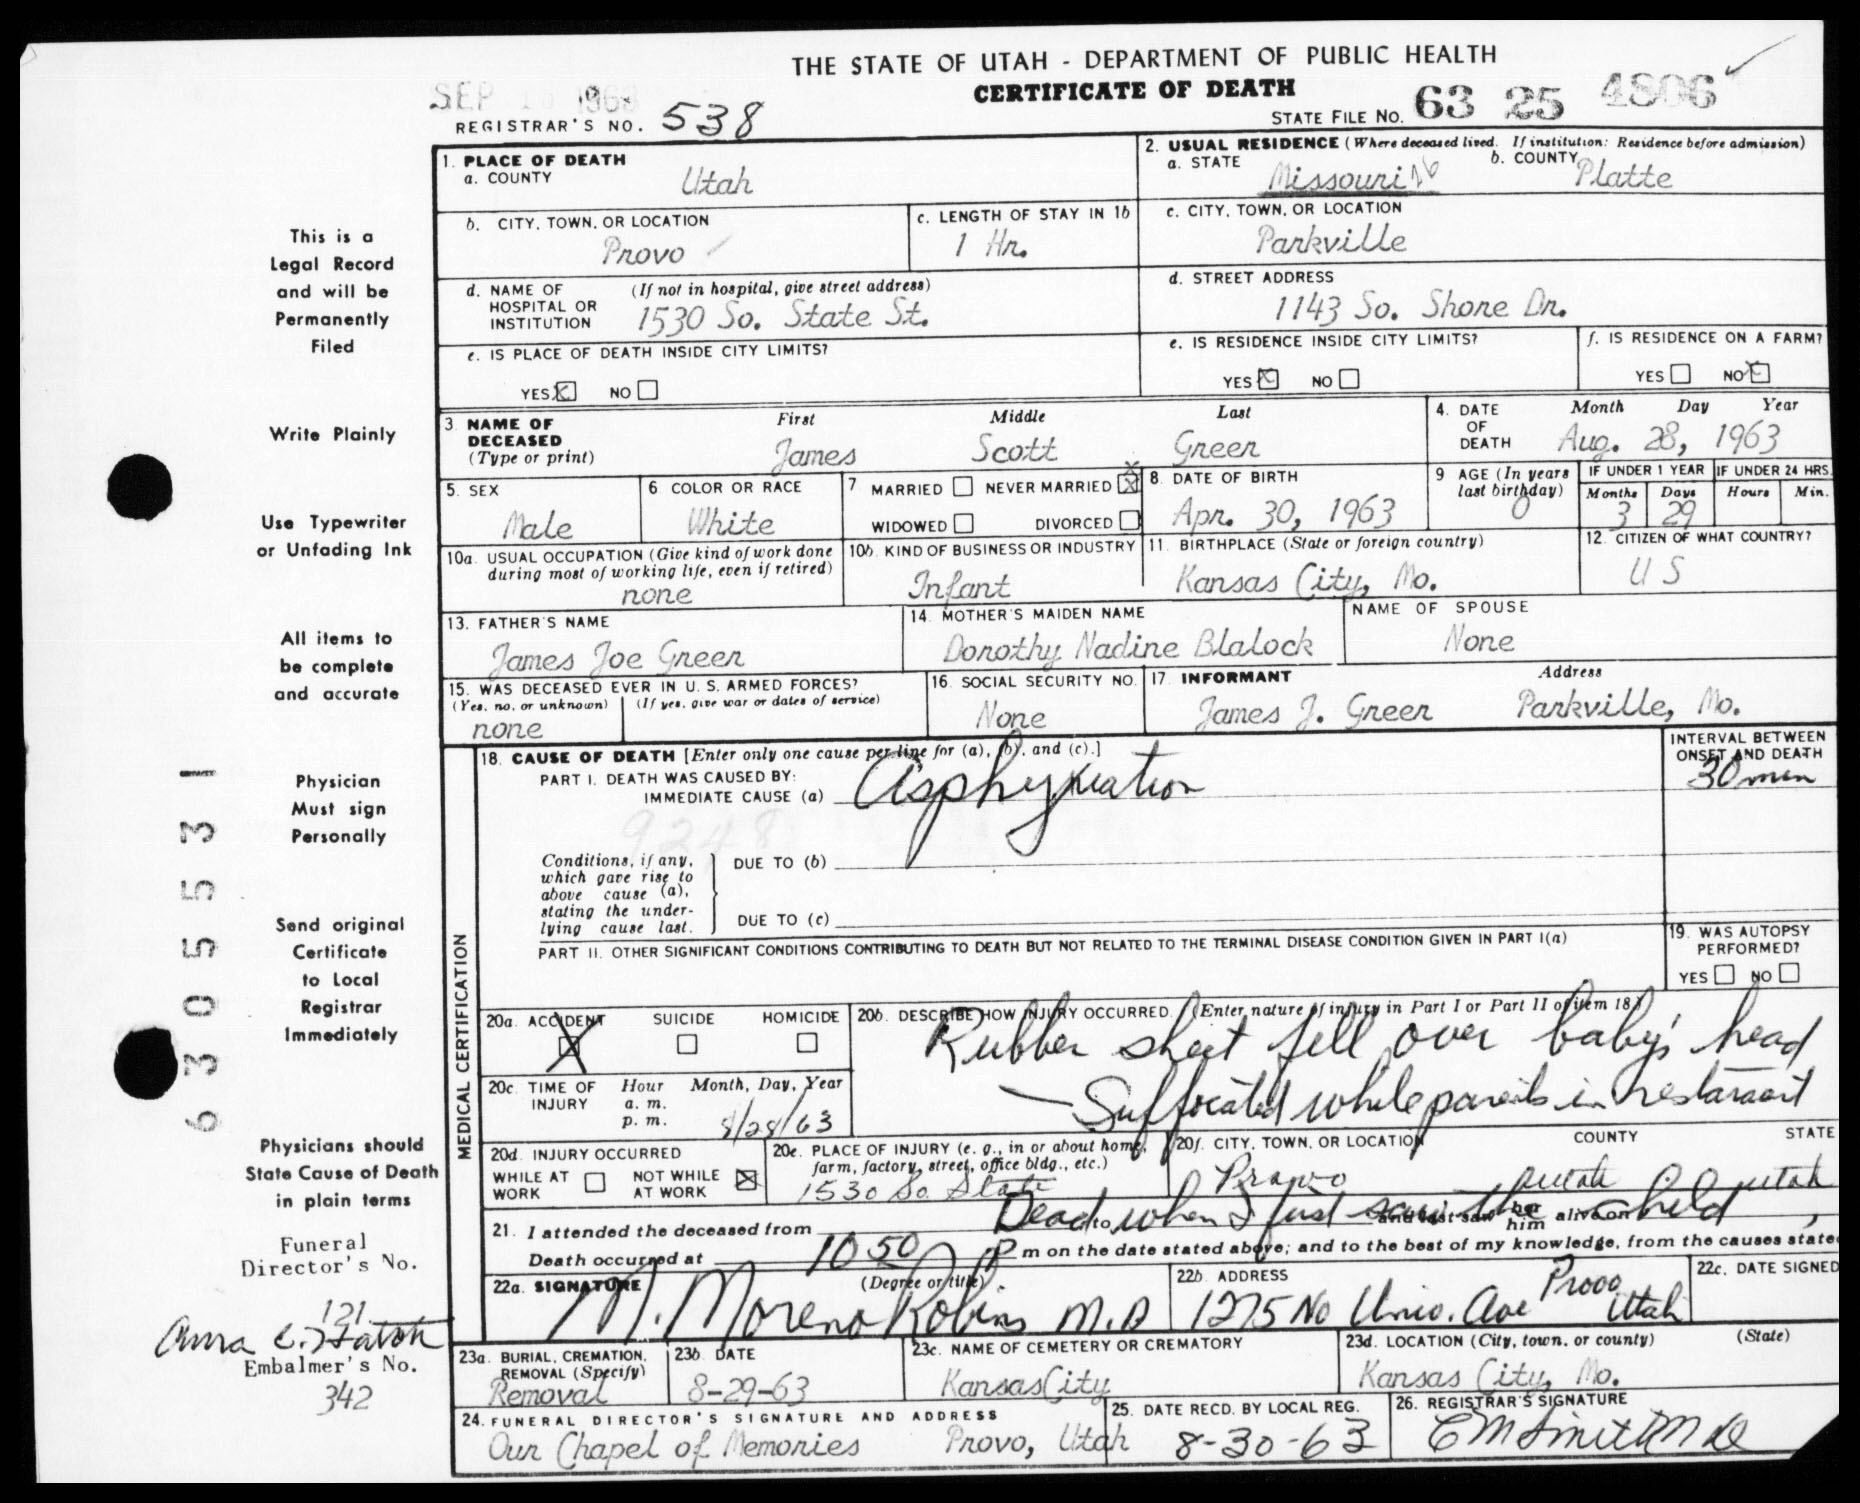 THE STATE OF UTAH - DEPARTMENT OF PUBLIC HEALTH
CERTIFICATE OF DEATH
SEP 1963
REGISTRAR'S NO. 538
STATE FILE NO. 63 25 4806
This is a
Legal Record
and will be
Permanently
Filed
Write Plainly
Use Typewriter
or Unfading Ink
All items to
be complete
and accurate
Physician
Must sign
Personally
Send original
Certificate
to Local
Registrar
Immediately
Physicians should
State Cause of Death
in plain terms
Funeral
Director's No.
121
Embalmer's No.
342
6305531
1. PLACE OF DEATH
a. COUNTY Utah
2. USUAL RESIDENCE (Where deceased lived. If institution: Residence before admission)
a. STATE Missouri b. COUNTY Platte
b. CITY, TOWN, OR LOCATION Provo
c. LENGTH OF STAY IN 1b 1 Hr.
c. CITY, TOWN, OR LOCATION Parkville
d. NAME OF HOSPITAL OR INSTITUTION (If not in hospital, give street address) 1530 So. State St.
d. STREET ADDRESS 1143 So. Shore Dr.
e. IS PLACE OF DEATH INSIDE CITY LIMITS? YES X NO
e. IS RESIDENCE INSIDE CITY LIMITS? YES X NO
f. IS RESIDENCE ON A FARM? YES NO X
3. NAME OF DECEASED (Type or print) First James Middle Scott Last Green
4. DATE OF DEATH Month Day Year Aug. 28, 1963
5. SEX Male
6 COLOR OR RACE White
7 MARRIED NEVER MARRIED X WIDOWED DIVORCED
8. DATE OF BIRTH Apr. 30, 1963
9 AGE (In years last birthday) 0
IF UNDER 1 YEAR Months 3 Days 29
IF UNDER 24 HRS. Hours Min.
10a. USUAL OCCUPATION (Give kind of work done during most of working life, even if retired) none
10b. KIND OF BUSINESS OR INDUSTRY Infant
11. BIRTHPLACE (State or foreign country) Kansas City, Mo.
12. CITIZEN OF WHAT COUNTRY? U S
13. FATHER'S NAME James Joe Green
14. MOTHER'S MAIDEN NAME Dorothy Nadine Blalock
NAME OF SPOUSE None
15. WAS DECEASED EVER IN U. S. ARMED FORCES? (Yes, no, or unknown) (If yes, give war or dates of service) none
16. SOCIAL SECURITY NO. None
17. INFORMANT James J. Green Address Parkville, Mo.
MEDICAL CERTIFICATION
18. CAUSE OF DEATH [Enter only one cause per line for (a), (b), and (c).]
PART I. DEATH WAS CAUSED BY:
IMMEDIATE CAUSE (a) Asphyxiation
INTERVAL BETWEEN ONSET AND DEATH 30 min
9248
Conditions, if any, which gave rise to above cause (a), stating the underlying cause last.
DUE TO (b)
DUE TO (c)
PART II. OTHER SIGNIFICANT CONDITIONS CONTRIBUTING TO DEATH BUT NOT RELATED TO THE TERMINAL DISEASE CONDITION GIVEN IN PART I(a)
19. WAS AUTOPSY PERFORMED? YES NO
20a. ACCIDENT X SUICIDE HOMICIDE
20b. DESCRIBE HOW INJURY OCCURRED. (Enter nature of injury in Part I or Part II of item 18.)
Rubber sheet fell over baby's head
- Suffocated while parents in restaraunt
20c. TIME OF INJURY Hour a. m. p. m. Month, Day, Year 8/28/63
20d. INJURY OCCURRED WHILE AT WORK NOT WHILE AT WORK X
20e. PLACE OF INJURY (e. g., in or about home, farm, factory, street, office bldg., etc.) 1530 So. State
20f. CITY, TOWN, OR LOCATION Provo COUNTY Utah STATE Utah
21. I attended the deceased from to and last saw her him alive on
Dead when I first saw the child
Death occurred at 10 50 P m on the date stated above; and to the best of my knowledge, from the causes state
22a. SIGNATURE (Degree or title) M. Moreno Robins M.D
22b. ADDRESS 1275 No Univ. Ave Provo Utah
22c. DATE SIGNED
23a. BURIAL, CREMATION, REMOVAL (Specify) Removal
23b. DATE 8-29-63
23c. NAME OF CEMETERY OR CREMATORY Kansas City
23d. LOCATION (City, town, or county) (State) Kansas City, Mo.
24. FUNERAL DIRECTOR'S SIGNATURE AND ADDRESS Our Chapel of Memories Provo, Utah
25. DATE RECD. BY LOCAL REG. 8-30-63
26. REGISTRAR'S SIGNATURE C M Smith M D